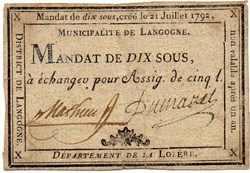 Mandat de dix sous, créé le 21 Juillet 1792,
MUNICIPALITÉ DE LANGOGNE.
MANDAT DE DIX SOUS,
à échanger pour Assig. de cinq l.
DÉPARTEMENT DE LA LOZÈRE.
DISTRICT DE LANGOGNE.
non valable après un an.